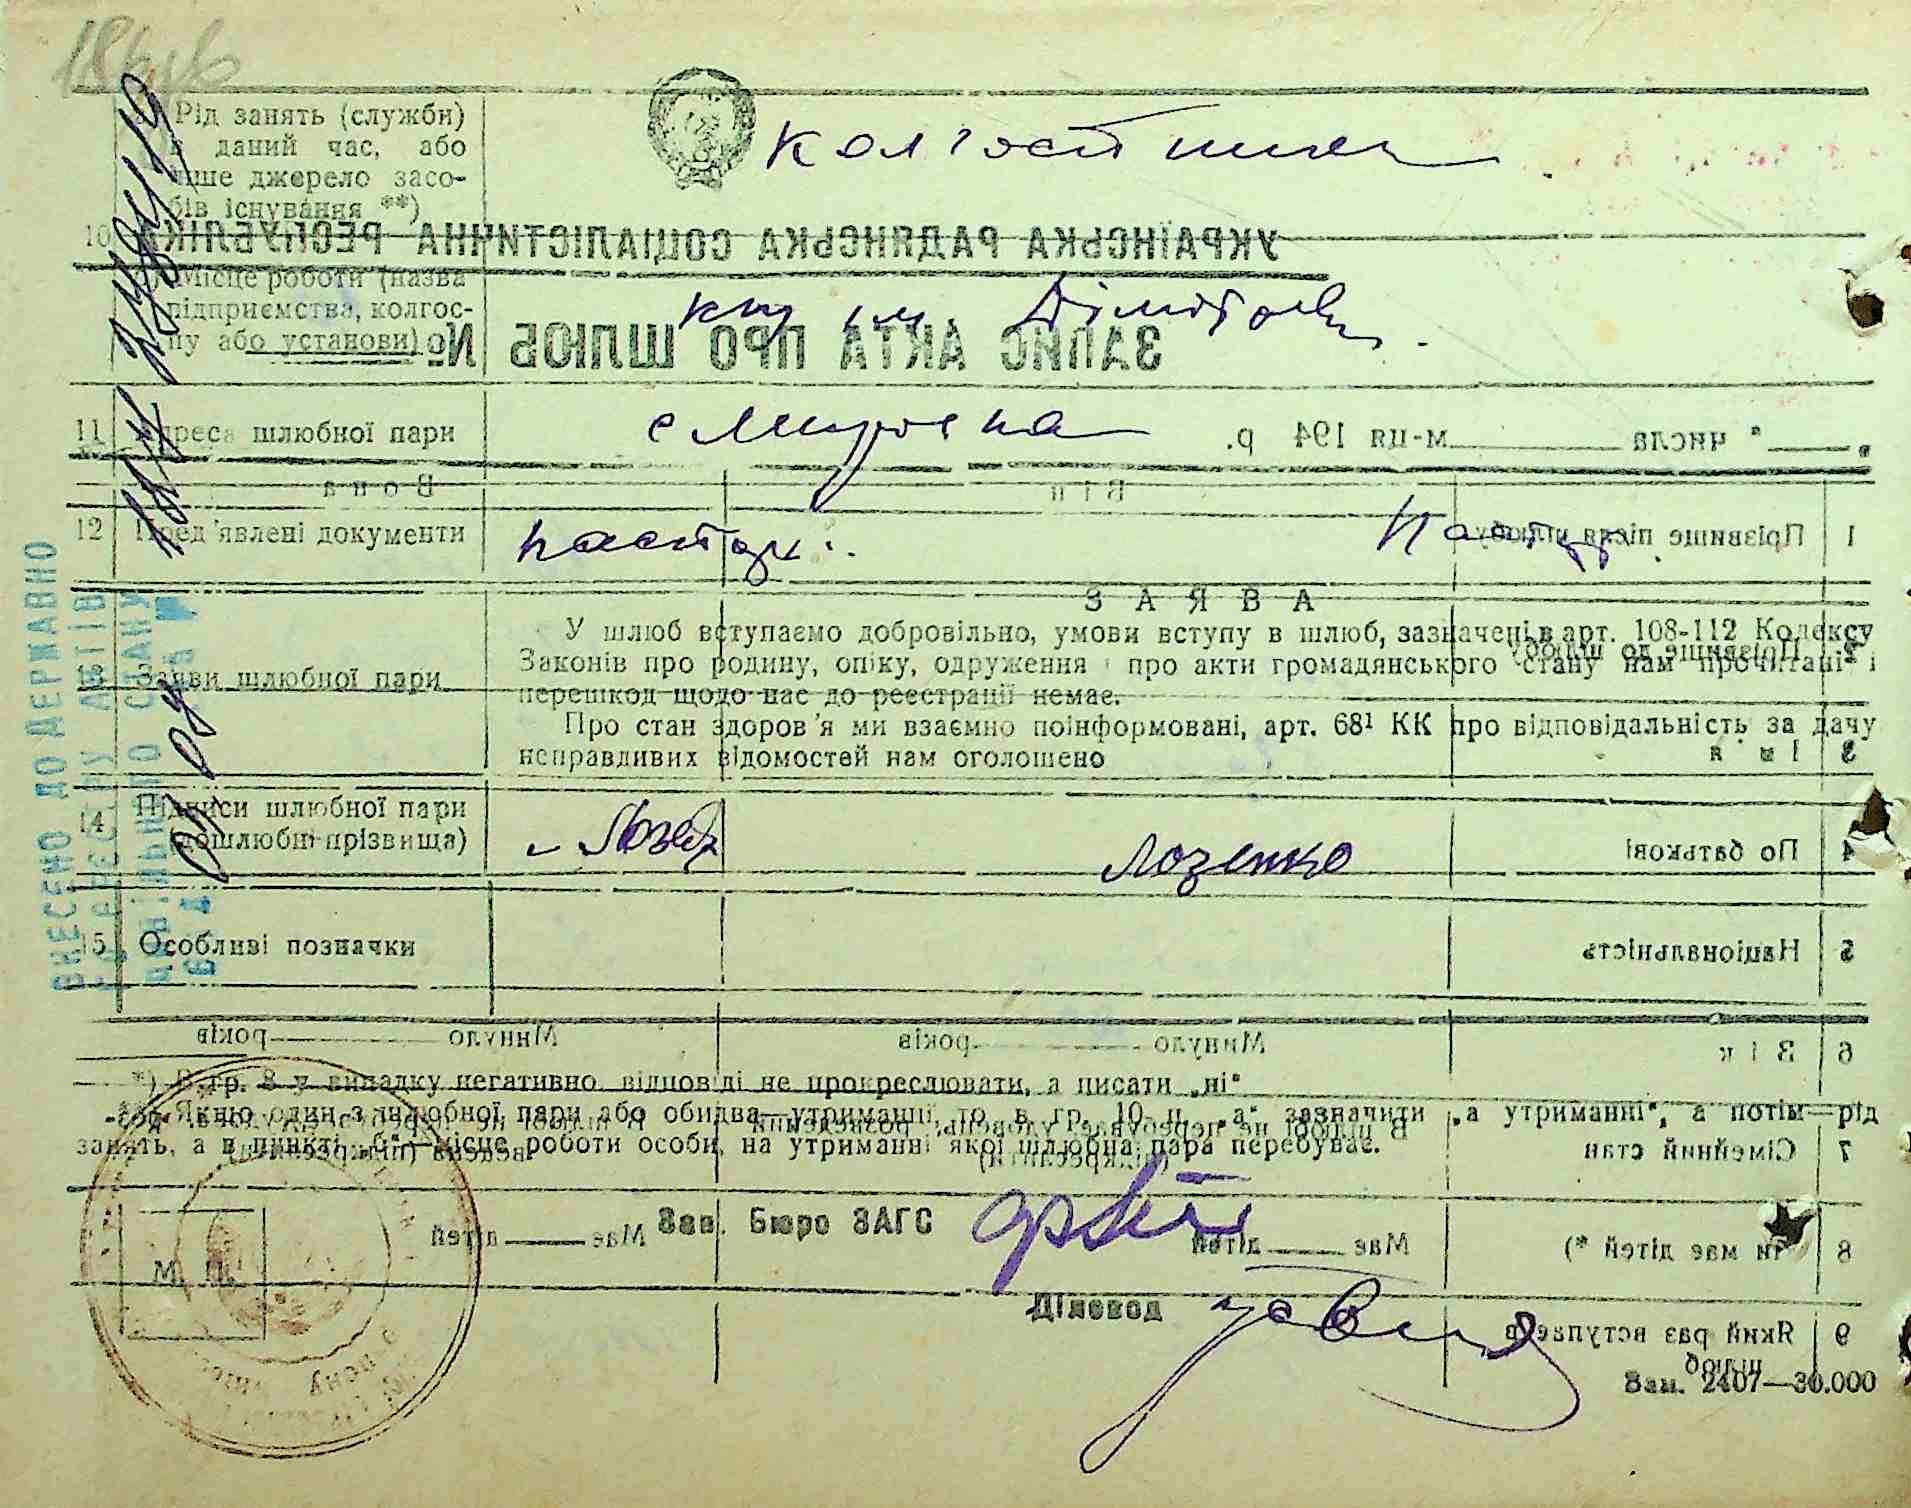 Рід занять (служби)
в даний час, або
інше джерело засо-
бів існування **)
колгоспник
10
Місце роботи (назва
підприємства, колгос-
пу або установи)
им. Дімітрова
11 Адреса шлюбної пари
12 Пред'явлені документи
паспорт
Паспорт
ЗАЯВА
У шлюб вступаємо добровільно, умови вступу в шлюб, зазначені в арт. 108-112 Кодексу
Законів про родину, опіку, одруження і про акти громадянського стану нам прочитані і
13 Заяви шлюбної пари
перешкод щодо нас до реєстрації немає.
Про стан здоров'я ми взаємно поінформовані, арт. 68¹ КК про відповідальність за дачу
неправдивих відомостей нам оголошено
14 Підписи шлюбної пари
(дошлюбні прізвища)
Лозенко
15 Особливі позначки
*) В гр. 8 у випадку негативно відповіді не прокреслювати, а писати „ні“
**) Якщо один з шлюбної пари або обидва—утриманці, то в гр. 10 п. „а“ зазначити „а утриманні“, а потім—рід
занять, а в пункті „б“—місце роботи особи, на утриманні якої шлюбна пара перебуває.
Зав. Бюро ЗАГС
М. П.
Діловод
Зам. 2407—30.000
ВНЕСЕНО ДО ДЕРЖАВНО
РЕЄСТРУ АКТІВ
ЦИВІЛЬНОГО СТАНУ
УКРАЇНСЬКА РАДЯНСЬКА СОЦІАЛІСТИЧНА РЕСПУБЛІКА
ЗАПИС АКТА ПРО ШЛЮБ №
" числа м-ця 194 р.
Він Вона
1 Прізвище після шлюбу
2 Прізвище до шлюбу
3 Ім'я
4 По батькові
5 Національність
6 Вік Минуло років Минуло років
7 Сімейний стан
8 Чи має дітей *) Має дітей Має дітей
9 Який раз вступає в
шлюб